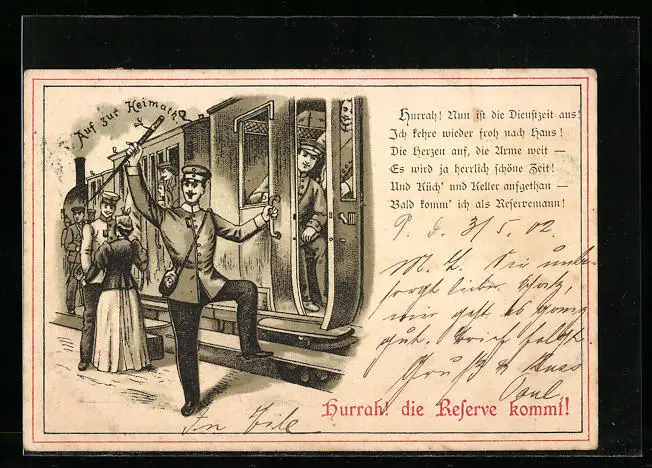 Auf zur Heimath
Hurrah! Nun ist die Dienstzeit aus!
Ich kehre wieder froh nach Haus!
Die Herzen auf, die Arme weit —
Es wird ja herrlich schöne Zeit!
Und Küch' und Keller aufgethan —
Bald komm' ich als Reservemann!
P. d. 3/5. 02.
M. L. Sei unbe-
sorgt lieber Schatz,
mir geht es ganz
gut. Brief folgt.
Gruß & Kuss
Paul
Hurrah! die Reserve kommt!
In Eile